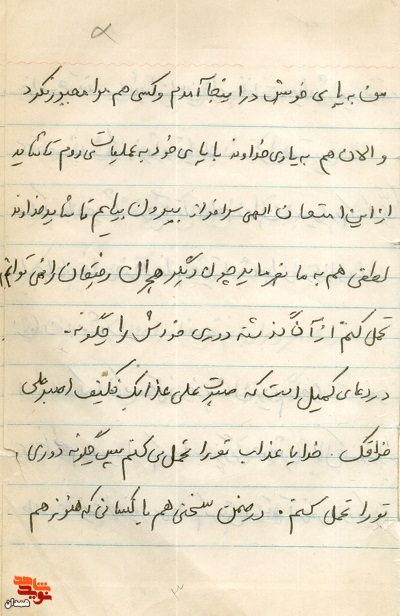 ۸
من به پای خویش در اینجا آمدم و کسی هم مرا مجبور نکرد
و الان هم به یاری خداوند با پای خود به عملیات می روم تا شاید
از این امتحان الهی سرافراز بیرون بیایم تا شاید خداوند
لطفی هم به ما بفرماید چون دیگر هجران رفیقان را نمی توانم
تحمل کنم از آن گذشته دوری خودش را چگونه.
در دعای کمیل است که صبرت علی عذابک فکیف اصبر علی
فراقک. خدایا عذاب تو را تحمل می کنم پس چگونه دوری
تو را تحمل کنم. در ضمن سخنی هم با کسانی که هنوز هم
نوید شاهد
همدان